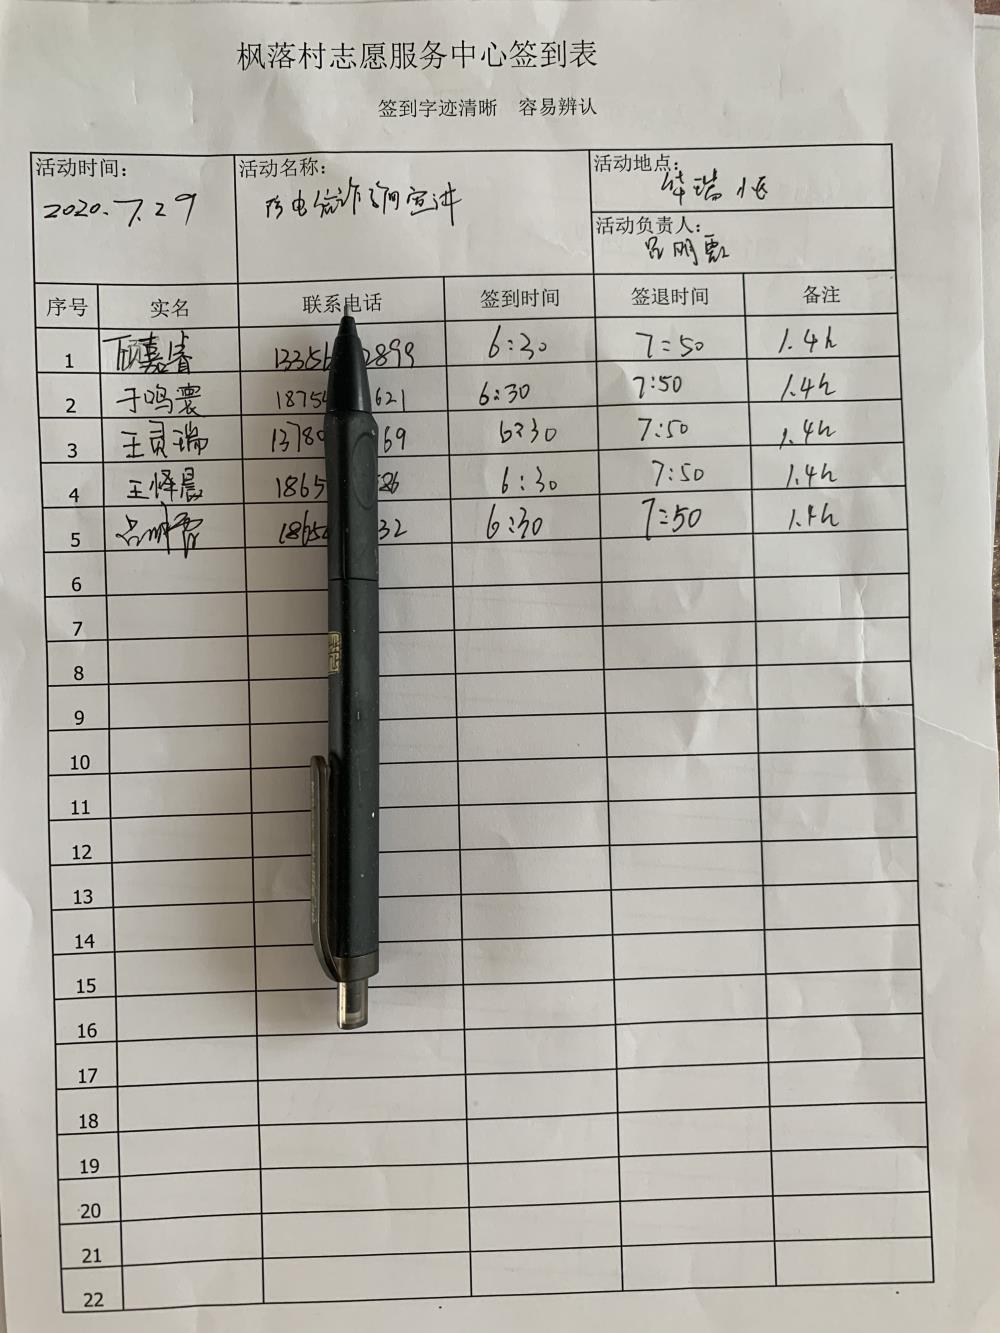 枫落村志愿服务中心签到表
签到字迹清晰 容易辨认
活动时间: 活动名称: 活动地点:
2020.7.29 防电信诈骗宣讲 华瑞
活动负责人:
吕明
序号 实名 联系电话 签到时间 签退时间 备注
1 嘉 13356 2899 6:30 7:50 1.4h
2 于鸣寰 1875 621 6:30 7:50 1.4h
3 王灵瑞 1378 69 6:30 7:50 1.4h
4 王怿晨 1865 86 6:30 7:50 1.4h
5 1865 32 6:30 7:50 1.4h
6
7
8
9
10
11
12
13
14
15
16
17
18
19
20
21
22